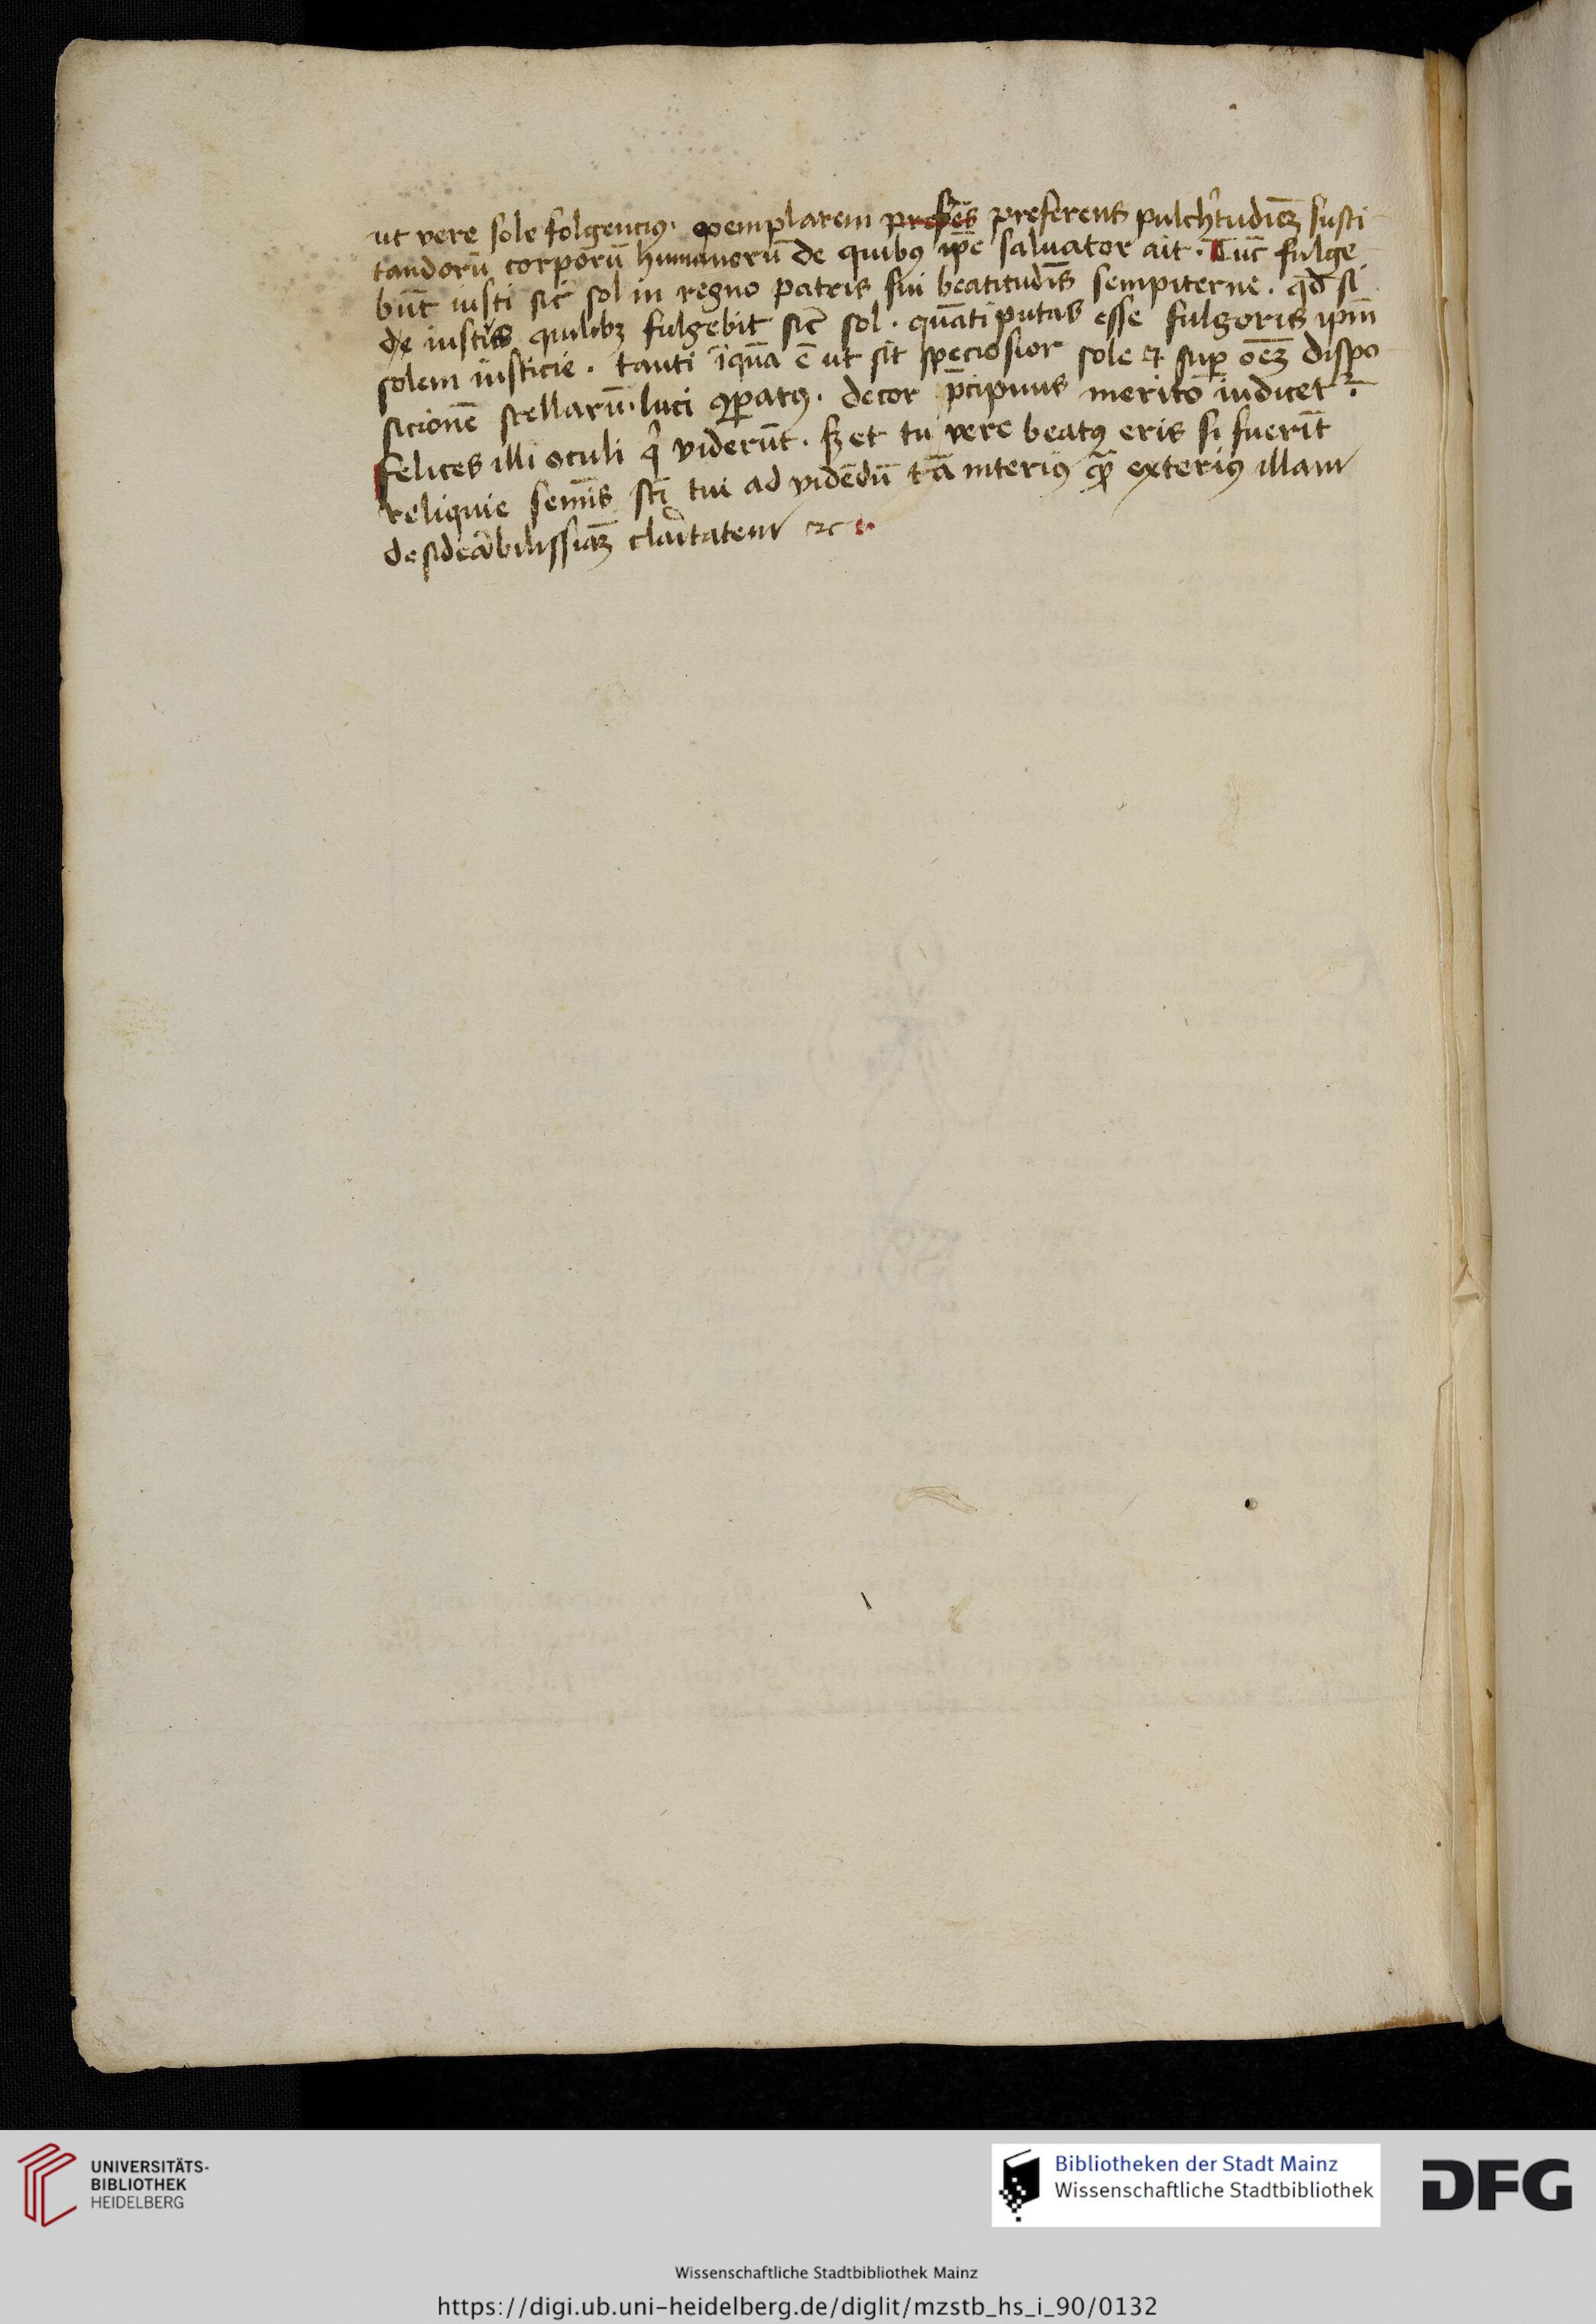 ut vere sole folgenciꝰ. exemplarem prefe͞s preferens pulchͥtudie͞ꝫ susci
tandoru͞ corporu͞ humanoru͞ de quibꝰ ip͞e saluator ait. Tu͞c fulge
bu͞t iusti sic͛ sol in regno patris sui beatitudi͞s sempiterne. qd͛ si
de iustis quilibꝫ fulgebit sic͛ sol. qua͞ti putas esse fulgoris ip͞m
solem iusticie. tanti i͞qua͞ e͞ ut sit speciosior sole et sup̱ oe͞ꝫ dispo
sicione͞ stellaru͞. luci ꝯp̱atꝰ. decor p͞cipuus merito iudicet᷑.
Felices illi oculi qͥ videru͞t. sꝫ et tu vere beatꝰ eris si fueri͞t
reliquie semi͞s sc͞i tui ad vide͞du͞ ta͞ interiꝰ qͣ͞ exteriꝰ illam
desideᷓbilissi͞aꝫ claͥtatem ⁊c
UNIVERSITÄTS-
BIBLIOTHEK
HEIDELBERG
Bibliotheken der Stadt Mainz
Wissenschaftliche Stadtbibliothek
DFG
Wissenschaftliche Stadtbibliothek Mainz
https://digi.ub.uni-heidelberg.de/diglit/mzstb_hs_i_90/0132